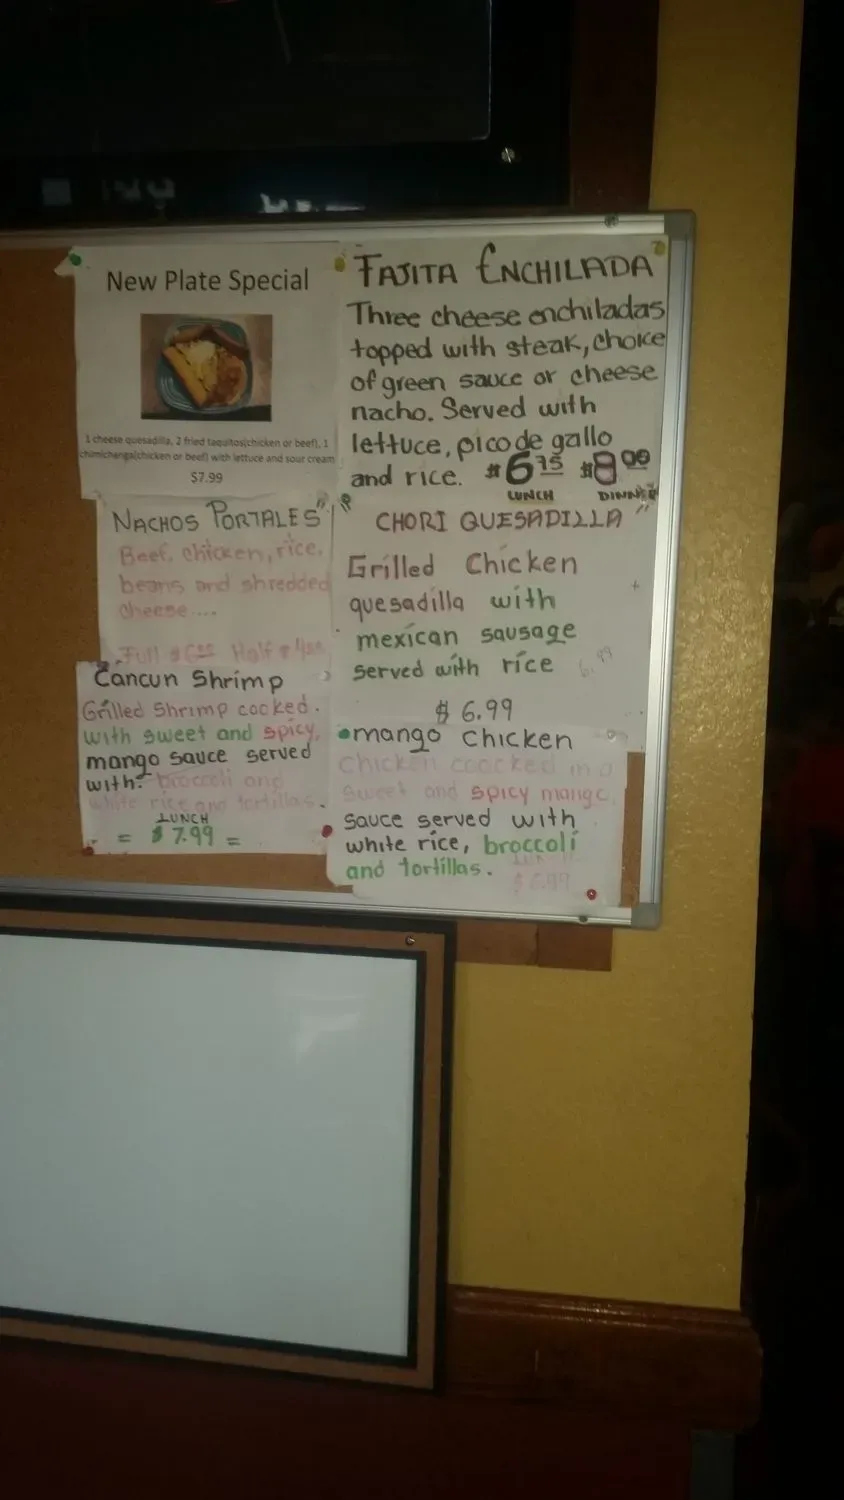 New Plate Special
1 cheese quesadilla, 2 fried taquitos(chicken or beef), 1
chimichanga(chicken or beef) with lettuce and sour cream
$7.99
FAJITA ENCHILADA
Three cheese enchiladas
topped with steak, choice
of green sauce or cheese
nacho. Served with
lettuce, pico de gallo
and rice. $6.75 $8.00
LUNCH DINNER
NACHOS PORTALES"
Beef, chicken, rice,
beans and shredded
cheese....
Full Half
" CHORI QUESADILLA "
Grilled Chicken
quesadilla with
mexican sausage
served with rice 6.99
$ 6.99
Cancun Shrimp
Grilled Shrimp cocked.
with sweet and spicy,
mango sauce served
with: broccoli and
white rice and tortillas.
LUNCH
= $ 7.99 =
•mango Chicken
Chicken coocked in a
sweet and spicy mango
sauce served with
white rice, broccoli
and tortillas.
$6.99